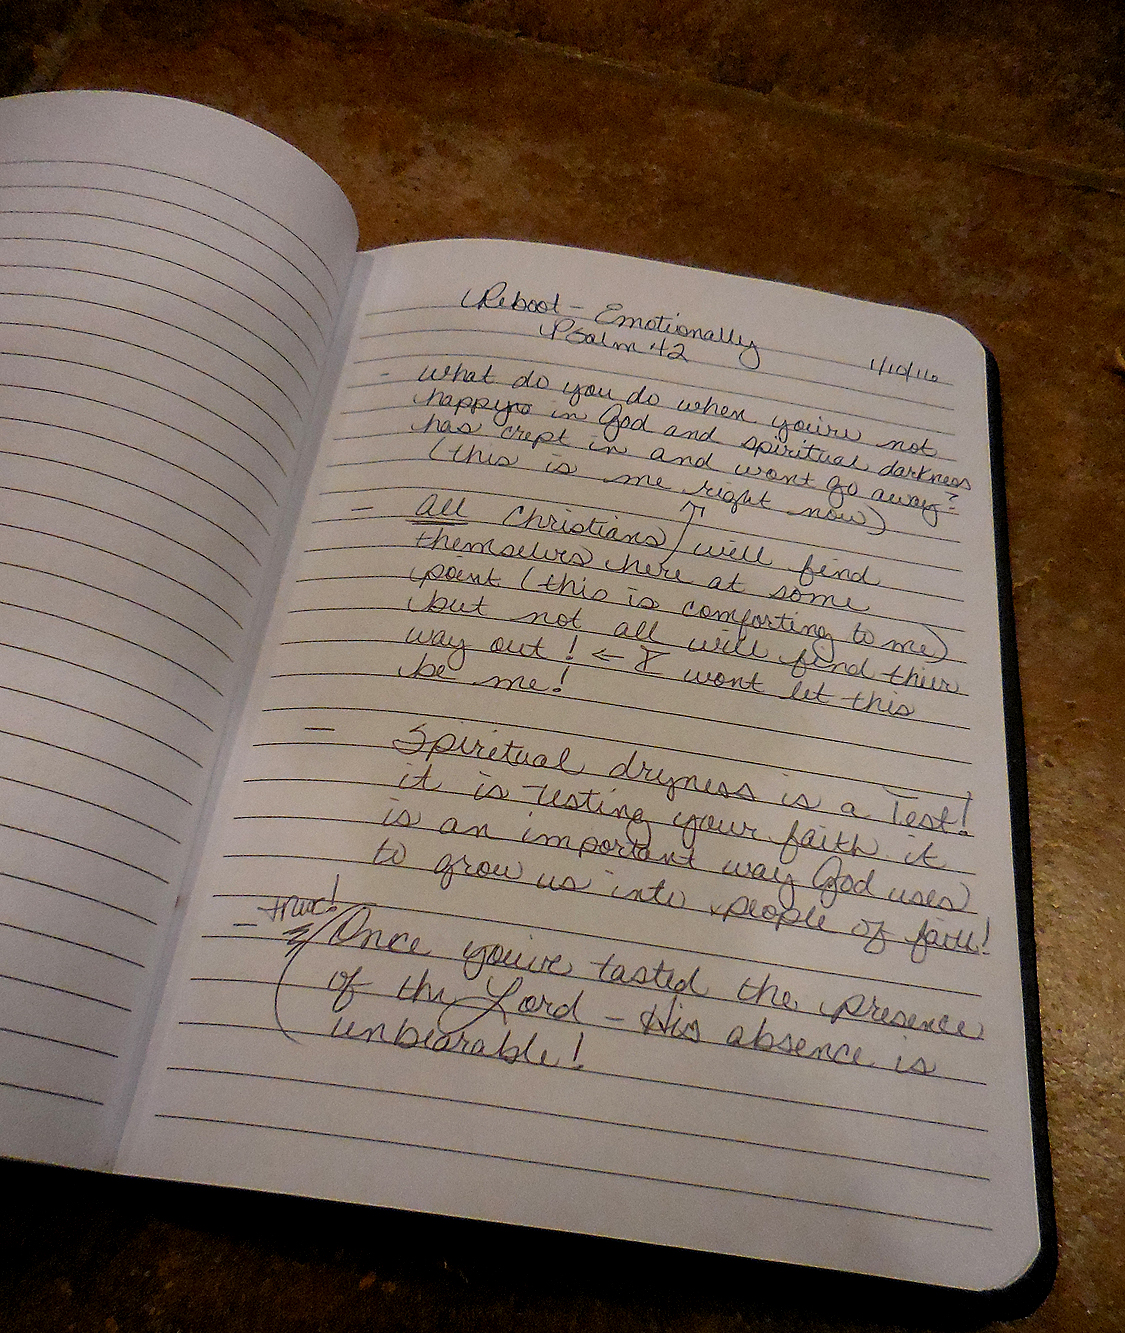 Reboot - Emotionally
Psalm 42
1/10/16
- What do you do when you're not
happy in God and spiritual darkness
has crept in and wont go away?
(this is me right now)
- All Christians will find
themselves here at some
point (this is comforting to me)
but not all will find their
way out! ← I wont let this
be me!
- Spiritual dryness is a Test!
it is testing your faith it
is an important way God uses
to grow us into people of faith!
true!
- Once you've tasted the presence
of the Lord - His absence is
unbearable!